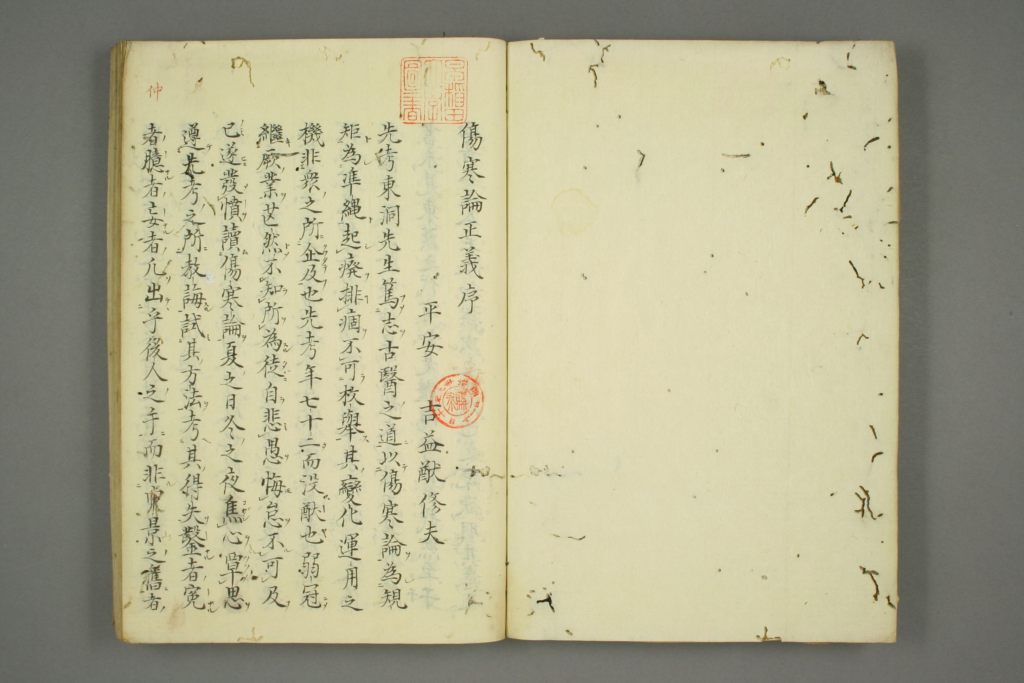 傷寒論正義序
平安 吉益猷修夫
先考東洞先生篤志古醫之道以傷寒論為規
矩為準繩起廢排痼不可枚舉其變化運用之
機非衆之所企及也先考年七十二而没猷也弱冠
繼厥業茫然不知所為徒自悲愚悔怠不可及
已遂發憤讀傷寒論夏之日冬之夜焦心覃思
遵先考之所教誨試其方法考其得失鑿者寃
者臆者妄者凢出乎後人之手而非景之舊者
仲